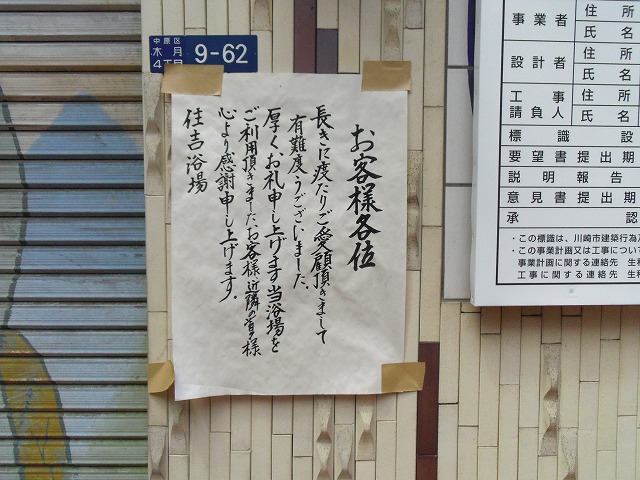 中原区
木月
4丁目
9-62
お客様各位
長きに疲たりご愛顧頂きまして
有難度うございました。
厚くお礼申し上げます当浴場を
ご利用頂きました、お客様、近隣の皆様
心より感謝申し上げます。
住吉浴場
事業者
住所
氏名
設計者
住所
氏名
工事
請負人
住所
氏名
標識設
要望書提出期
説明報告
意見書提出期
承認
・この標識は、川崎市建築行為及
・この事業計画又は工事につい
事業計画に関する連絡先 生
工事に関する連絡先 生